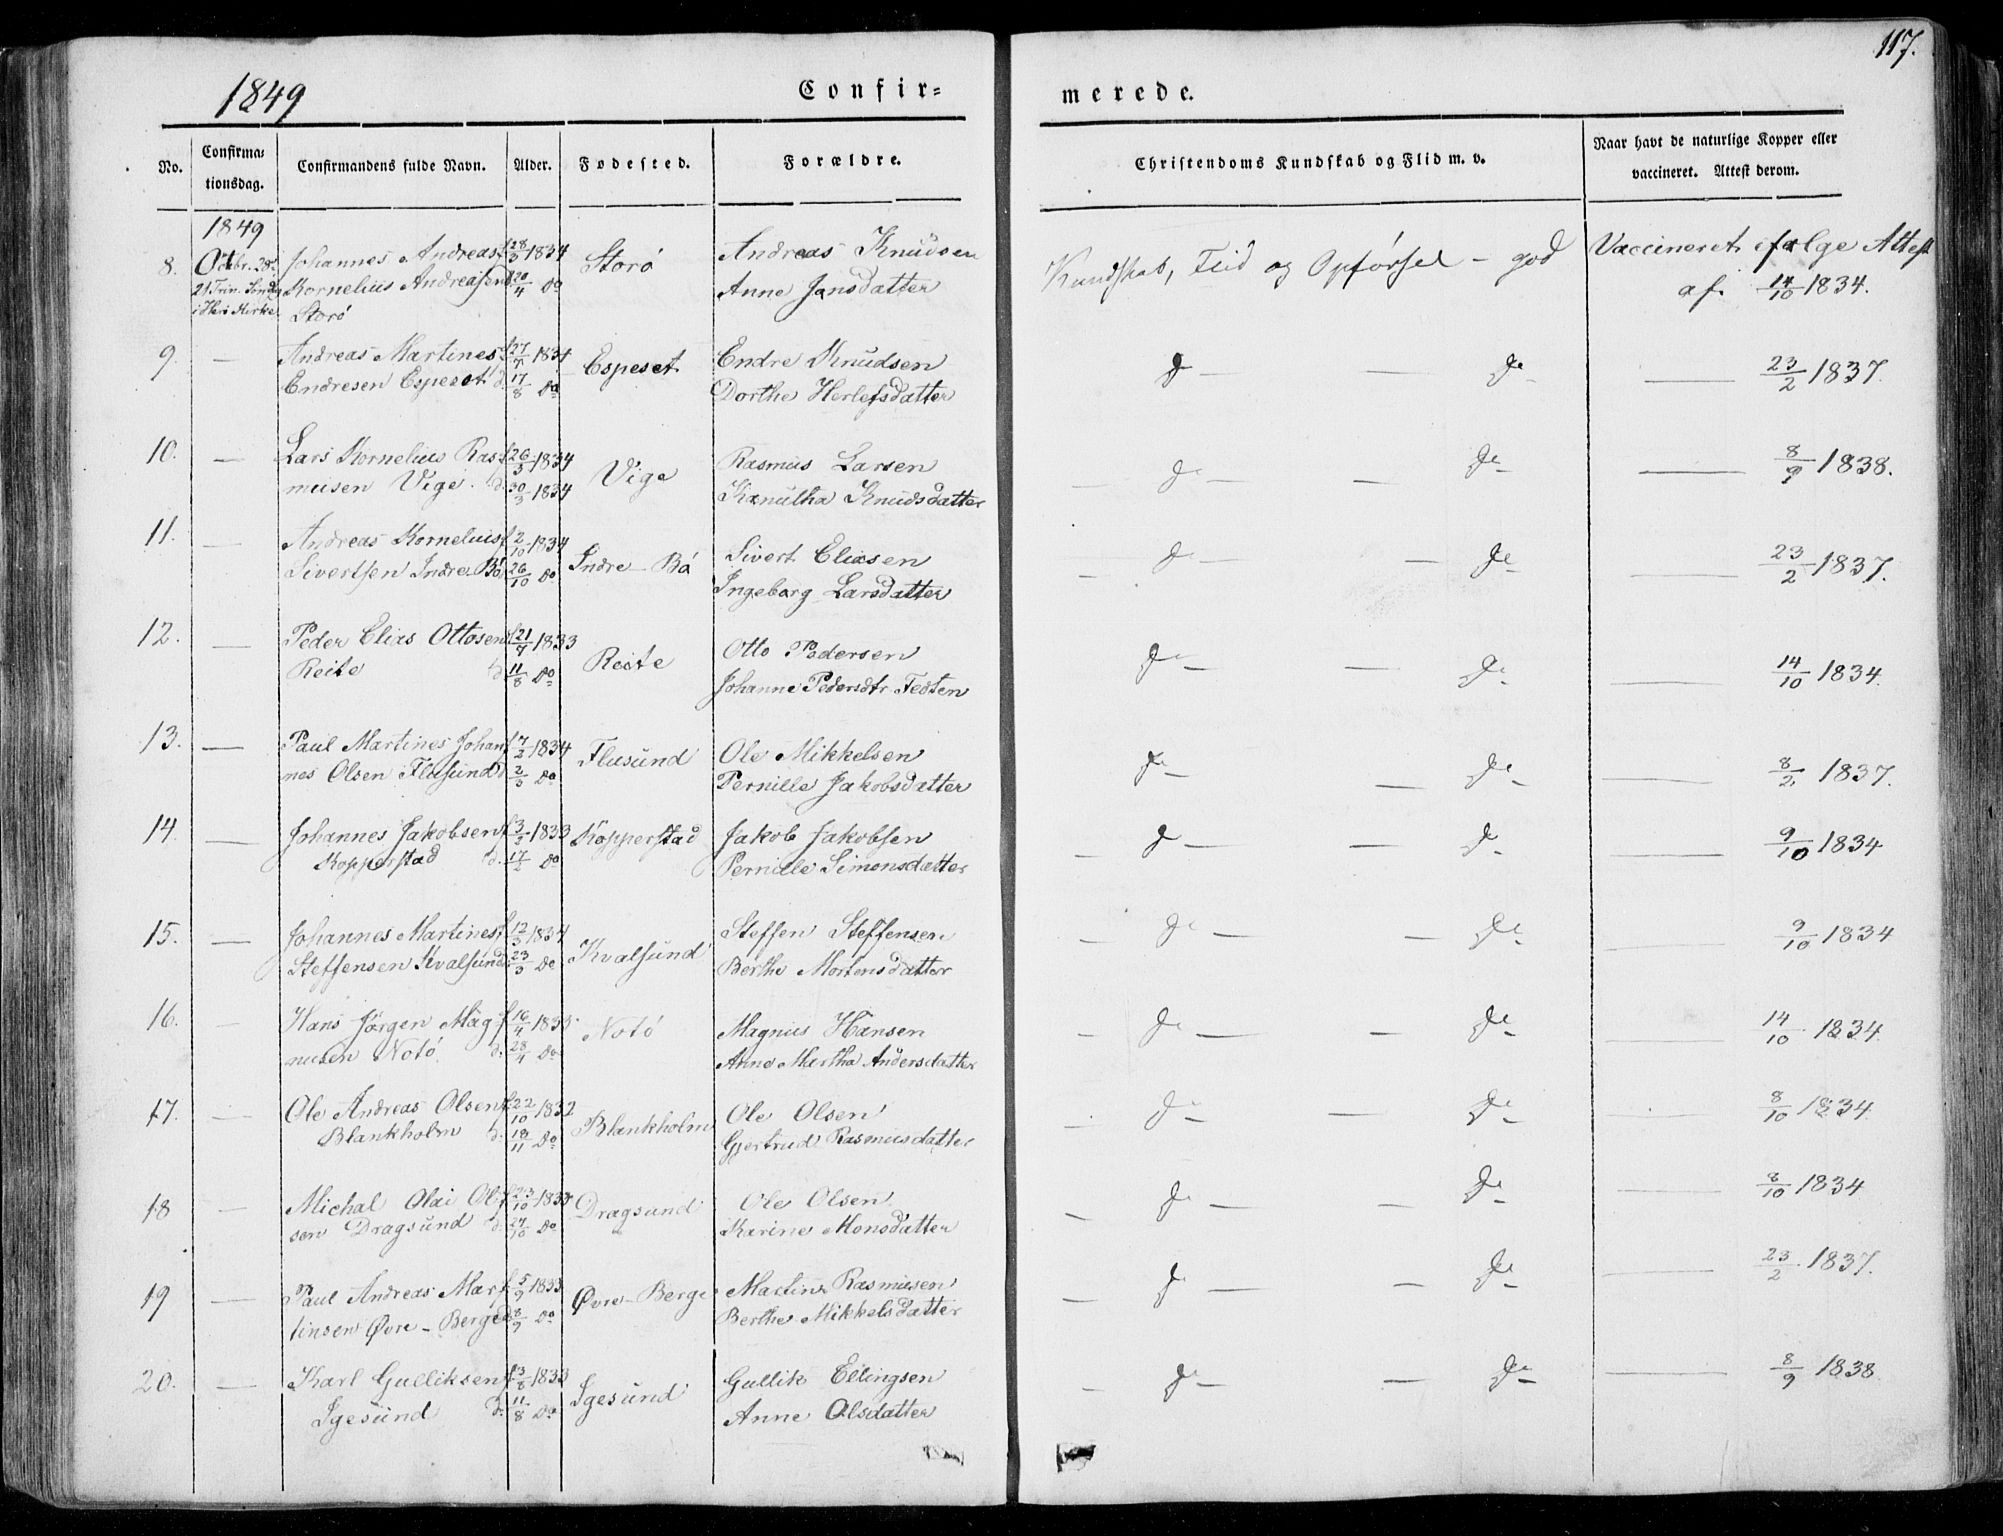 117.
1849
Confir=
merede.
No.
Confirma=
tionsdag.
Confirmandens fulde Navn.
Alder.
Fødested.
Forældre.
Christendoms Kundskab og Flid m. v.
Naar havt de naturlige Kopper eller
vaccineret. Attest derom.
1849
8. Octbr. 28. Johannes Andreas f 28/3 1834 Storö Andreas Knudsen Kundskab, Flid og Opförsel - god Vaccineret ifølge Attest
21 Trin. Sondg Kornelius Andreasen d 20/4 do Anne Jansdatter af. 14/10 1834.
i Herö Kirke Storö
9. — Andreas Martines f 27/7 1834 Espeset Endre Knudsen do — — do — 23/2 1837.
Endresen Espeset d. 17/8 do Dorthe Herlefsdatter
10. — Lars Kornelius Ras f 26/3 1834 Vige Rasmus Larsen — do — — do — 8/9 1838.
musen Vige. d. 30/3 1834 Kanutha Knudsdatter
11. — Andreas Kornelius f 2/10 1834 Indre - Bö Sivert Eliasen — do — — do — 23/2 1837.
Sivertsen Indre Bö 26/10 do Ingeborg Larsdatter
12. — Peder Elias Ottosen f 21/7 1833 Reite Otto Pedersen do — — do — 14/10 1834.
Reite d 11/8 do Johanne Pedersdtr
13. — Paul Martines Johan f 7/2 1834 Flusund Ole Mikkelsen do — — do — 8/2 1837.
nes Olsen Flusund d 2/3 do Pernille Jakobsdatter
14. — Johannes Jakobsen f 3/2 1833 Kopperstad Jakob Jakobsen — do — — do — 9/10 1834
Kopperstad d. 17/2 do Pernille Simonsdatter
15. — Johannes Martines f 12/3 1834 Kvalsund Steffen Steffensen — do — — do — 9/10 1834
Steffensen Kvalsund 23/3 do Berthe Mortensdatter
16. — Hans Jörgen Mag f 16/4 1833 Notö Magnus Hansen — do — — do — 14/10 1834.
nusen Notö. d. 28/4 do Anne Martha Andersdatter
17. — Ole Andreas Olsen f 22/10 1832 Blankholm Ole Olsen — do — — do — 8/10 1834.
Blankholm d. 18/11 do Gjertrud Rasmusdatter
18 — Michal Olai Ol f 23/10 1833 Dragsund Ole Olsen — do — — do — 8/10 1834
sen Dragsund d. 27/10 do Karine Monsdatter
19 — Paul Andreas Mar f 5/9 1833 Øvre - Berge Martin Rasmusen — do — — do — 23/2 1837.
tinsen Øvre - Berge d 8/9 do Berthe Mikkelsdatter
20. — Karl Gulliksen f 3/8 1833 Igesund Gullik Ellingsen — do — — do — 8/9 1838
Igesund d. 11/8 do Anne Olsdatter